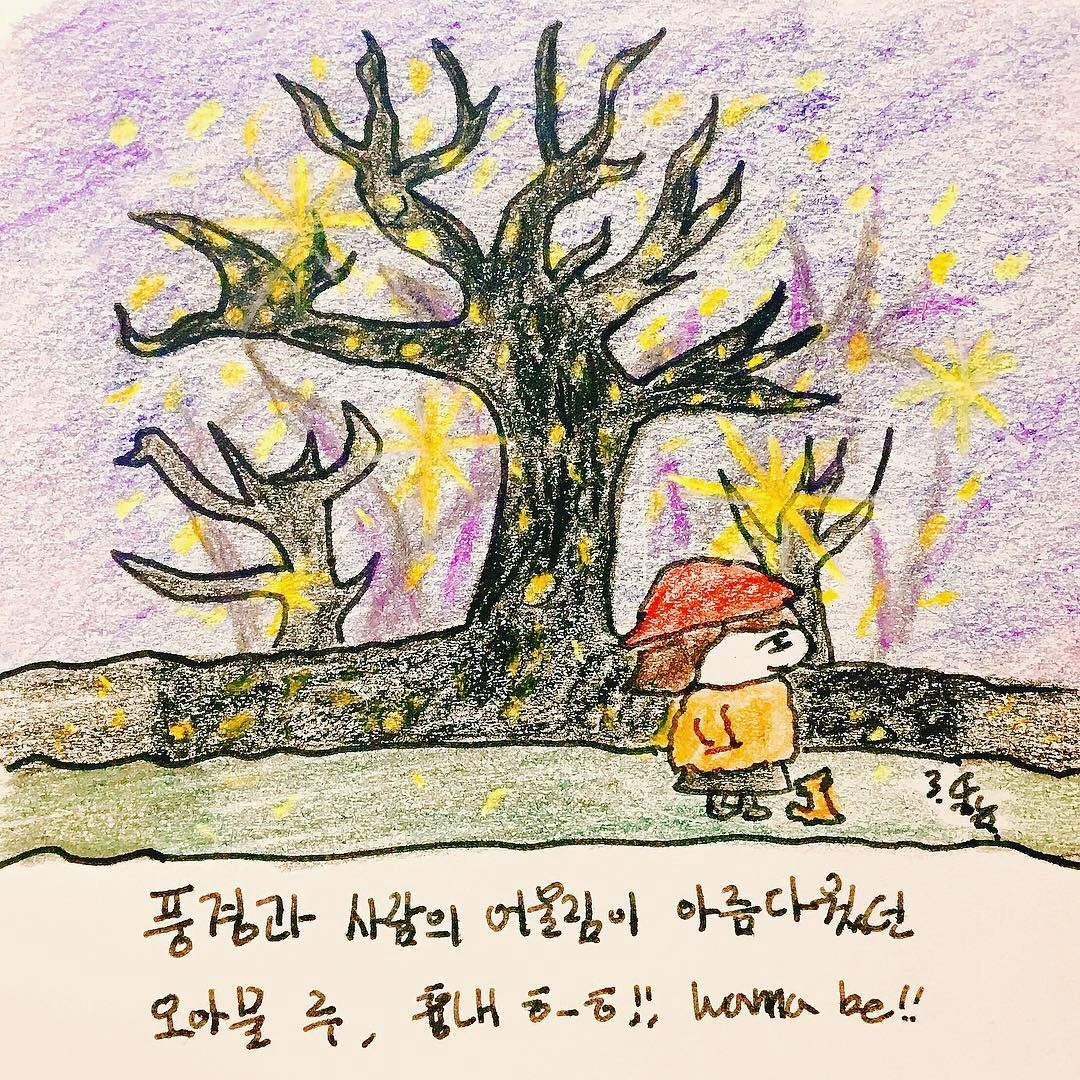 풍경과 사람의 어울림이 아름다웠던
오아물 루, 흉내 ㅎ_ㅎ!!, wanna be!!